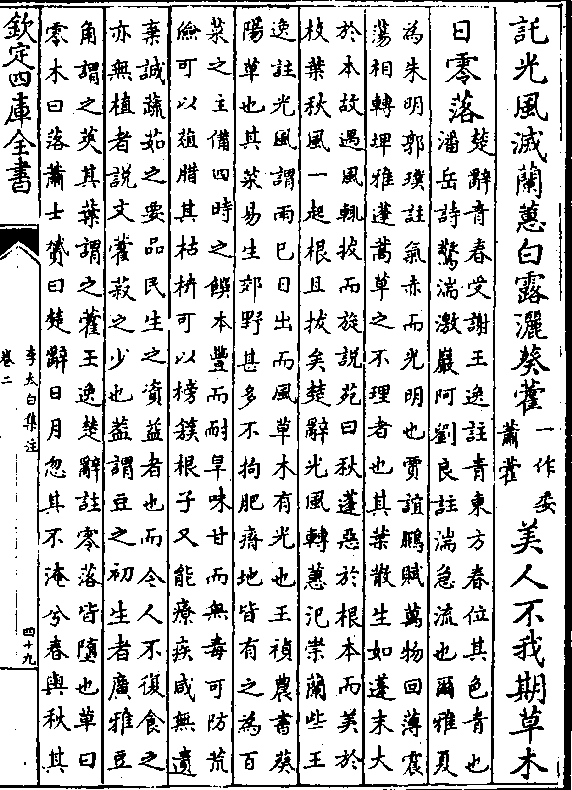 託光風滅蘭蕙白露灑葵藿一作委
蕭藿美人不我期草木
日零落楚辭青春受謝王逸註青東方春位其色青也
潘岳詩驚湍激巖阿劉良註湍急流也爾雅夏
為朱明郭璞註氣赤而光明也賈誼鵩賦萬物回薄震
蕩相轉埤雅蓬蒿草之不理者也其葉散生如蓬末大
於本故遇風輒拔而旋説苑曰秋蓬惡於根本而美於
枝葉秋風一起根且拔矣楚辭光風轉蕙汜崇蘭些王
逸註光風謂雨已日出而風草木有光也王禎農書葵
陽草也其菜易生郊野甚多不拘肥瘠地皆有之為百
菜之主備四時之饌本豐而耐旱味甘而無毒可防荒
儉可以葅腊其枯枿可以榜簇根子又能療疾咸無遺
棄誠蔬茹之要品民生之資益者也而今人不復食之
亦無植者說文藿菽之少也葢謂豆之初生者廣雅豆
角謂之莢其葉謂之藿王逸楚辭註零落皆墮也草曰
零木曰落蕭士贇曰楚辭日月忽其不淹兮春與秋其
欽定四庫全書
李太白集注
卷二
四十九